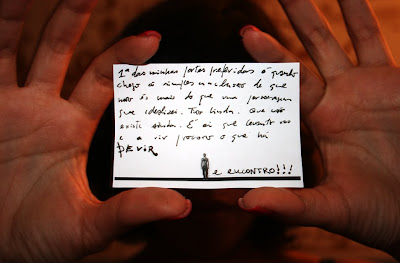 1ª das minhas portas preferidas é quando
chego à simples conclusão de que
não és mais do que uma personagem
que idealizei. Tão linda. Que não
existe ainda. É aí que levanto voo
e a rir procuro o que há
DEVIR
e encontro!!!